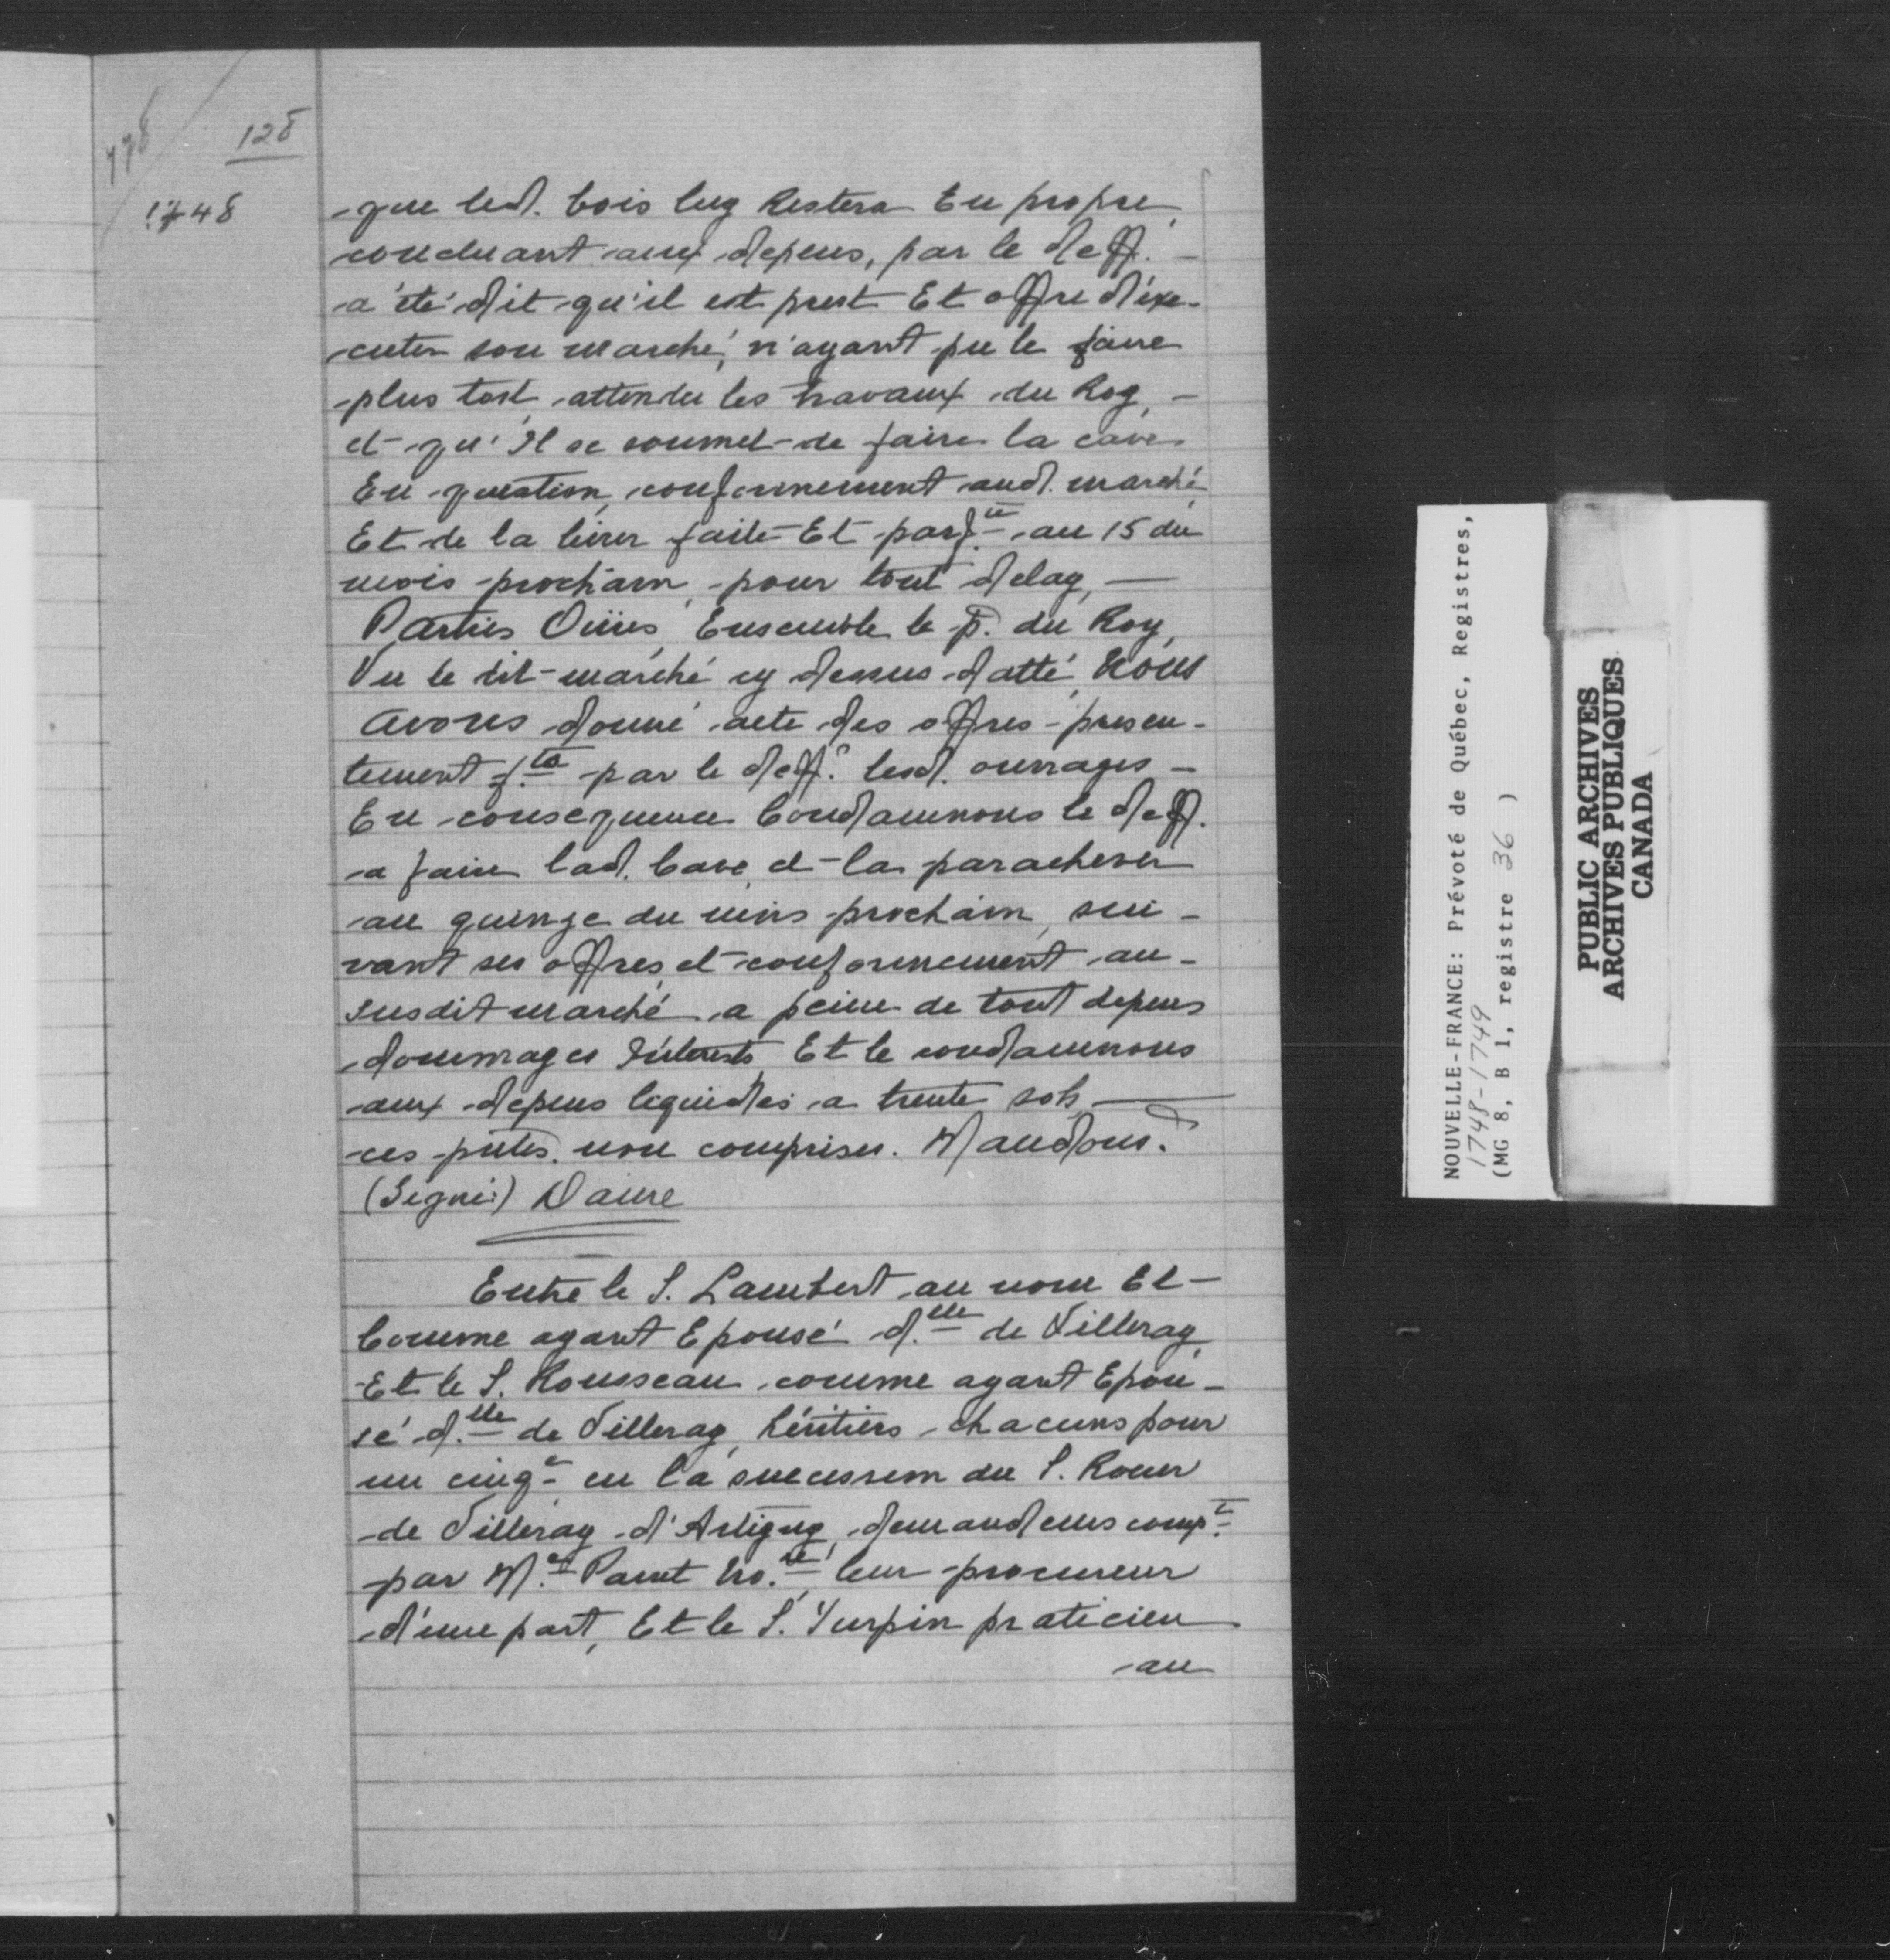 778
128
1748
que led. bois luy Restera En propre,
concluant aux depens, par le deff.
a été dit qu'il est prest Et offre d'exe-
cuter son marché, n'ayant pu le faire
plus tost, attendu les travaux du Roy, -
et qu'Il se soumet de faire la cave
En question, conformement aud. marché
Et de la livrer faite Et parf.te au 15 du
mois prochain, pour tout delay, —
Parties Oüies, Ensemble le p. du Roy,
Vu le dit marché cy dessus datté, Nous
avons donné acte des offres presen-
tement f.tes par le deff.r lesd. ouvrages -
En consequence Condamnons le deff.
a faire lad. Cave, et la parachever
au quinze du mois prochain, sui-
vant ses offres, et conformement au-
susdit marché a peine de tout depens
dommages Interests Et le condamnons
aux depens liquidés a trente sols, —
ces pntes. non comprises. Mandons.
(Signé:) Daine
Entre le S. Lambert au nom Et
Comme ayant Epousé d.lle de Villeray,
Et le S. Rousseau comme ayant Epou-
sé d.lle de Villeray, héritiers chacuns pour
un cinq.e en la succession du S. Rouer
de Villeray d'Artigny, demandeurs comp.t
par M.e Panet no.re, leur procureur
d'une part, Et le S. Turpin praticien
au
NOUVELLE-FRANCE: Prévoté de Québec, Registres,
1748-1749
(MG 8, B 1, registre 36 )
PUBLIC ARCHIVES
ARCHIVES PUBLIQUES
CANADA